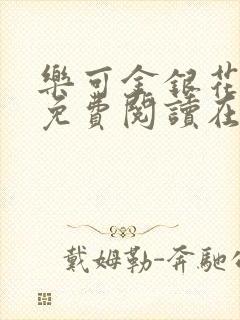 樂可金銀花
免費閱讀在
戴姆勒-奔馳公